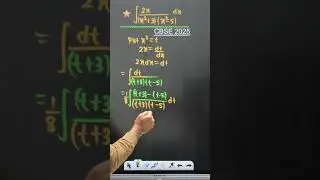 ★ ∫ 2x / (x²+3)(x²-5) dx
CBSE 2025
Put x² = t
2x = dt/dx
2x dx = dt
= ∫ dt / (t+3)(t-5)
= 1/8 ∫ (t+3)-(t-5) / (t+3)(t-5) dt